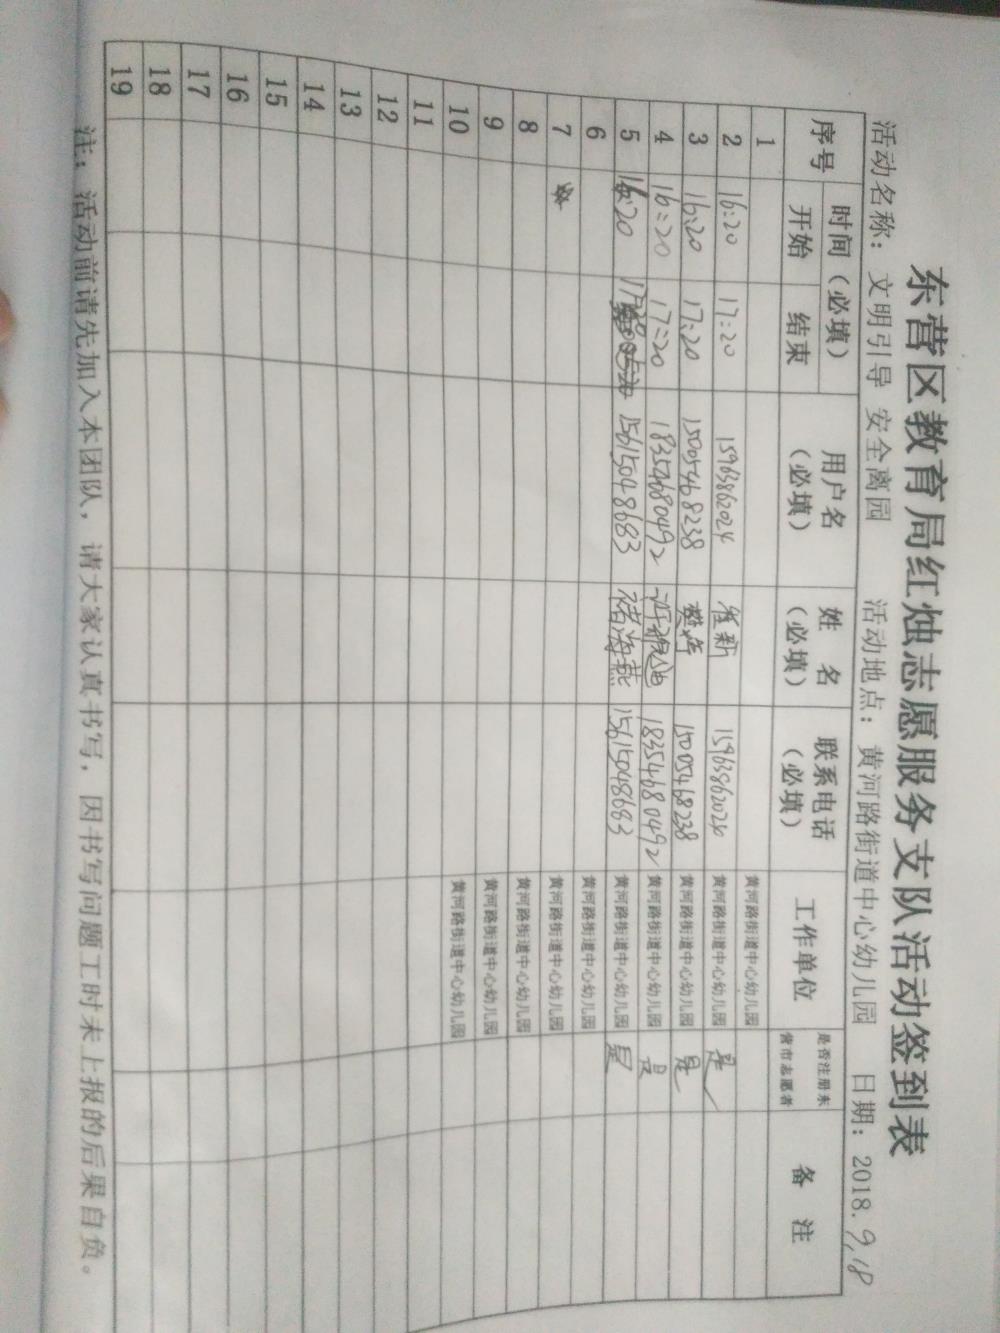 东营区教育局红烛志愿服务支队活动签到表
活动名称：文明引导 安全离园 活动地点：黄河路街道中心幼儿园 日期：2018.9.18
序号 时间（必填） 用户名（必填） 姓 名（必填） 联系电话（必填） 工作单位 是否注册东营市志愿者 备 注
开始 结束
1 黄河路街道中心幼儿园
2 16:20 17:20 15963862024 崔新 15963862024 黄河路街道中心幼儿园 是
3 16:20 17:20 15005468238 樊婷 15005468238 黄河路街道中心幼儿园 是
4 16:20 17:20 18354680492 18354680492 黄河路街道中心幼儿园 是
5 16:20 17:20 15615048683 褚海燕 15615048683 黄河路街道中心幼儿园 是
6 黄河路街道中心幼儿园
7 黄河路街道中心幼儿园
8 黄河路街道中心幼儿园
9 黄河路街道中心幼儿园
10 黄河路街道中心幼儿园
11
12
13
14
15
16
17
18
19
注：活动前请先加入本团队，请大家认真书写，因书写问题工时未上报的后果自负。